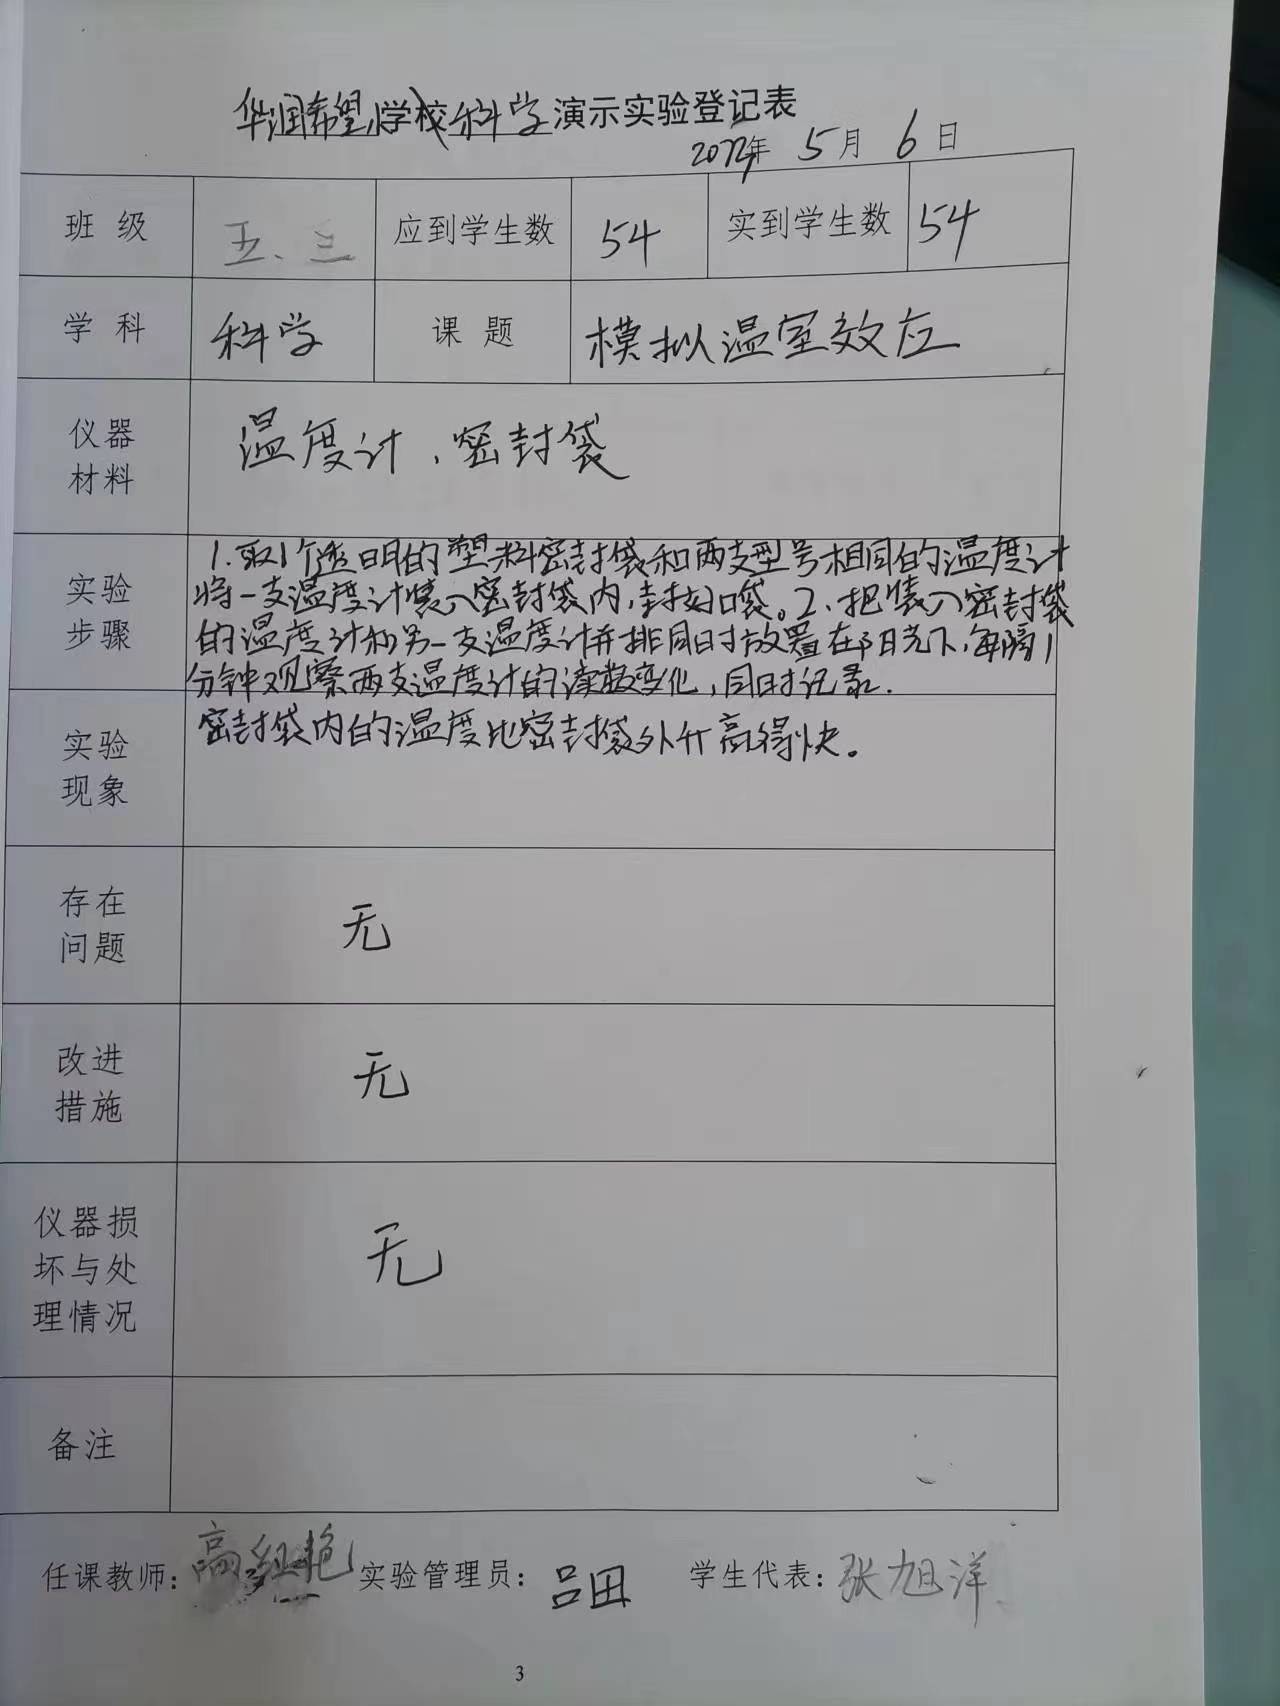 华润希望小学校科学演示实验登记表
5月6日
班级 五、三 应到学生数 54 实到学生数 54
学科 科学 课题 模拟温室效应
仪器
材料
温度计、密封袋
实验
步骤
1.取1个透明的塑料密封袋和两支型号相同的温度计
将一支温度计装入密封袋内,封好口袋。2、把装入密封袋
的温度计和另一支温度计并排同时放置在阳光下,每隔1
分钟观察两支温度计的读数变化,同时记录.
实验
现象
密封袋内的温度比密封袋外升高得快。
存在
问题
无
改进
措施
无
仪器损
坏与处
理情况
无
备注
任课教师:高 艳 实验管理员:吕田 学生代表:张旭洋
3